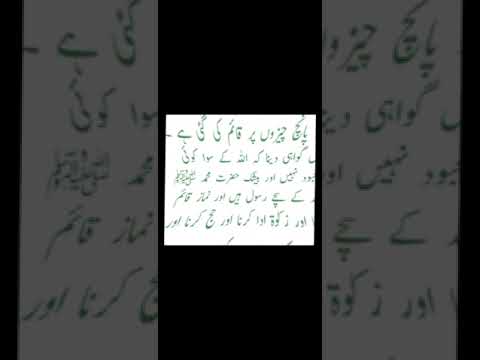 پانچ چیزوں پر قائم کی گئی ہے ۔
گواہی دینا کہ اللہ کے سوا کوئی
نہیں اور بیشک حضرت محمد ﷺ
کے سچے رسول ہیں اور نماز قائم
اور زکوٰۃ ادا کرنا اور حج کرنا اور